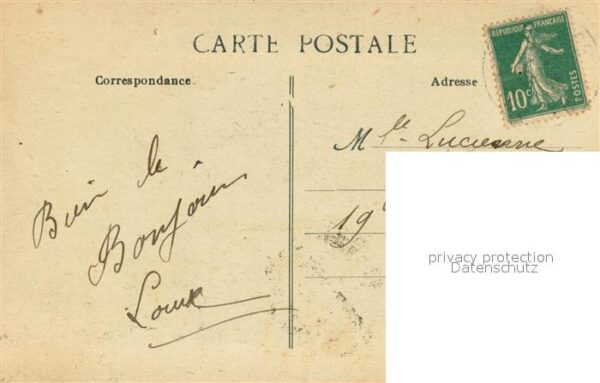 CARTE POSTALE
Correspondance
Adresse
REPUBLIQUE FRANÇAISE
10c
POSTES
Mlle Lucienne
19
Bien le
Bonjour
privacy protection
Datenschutz